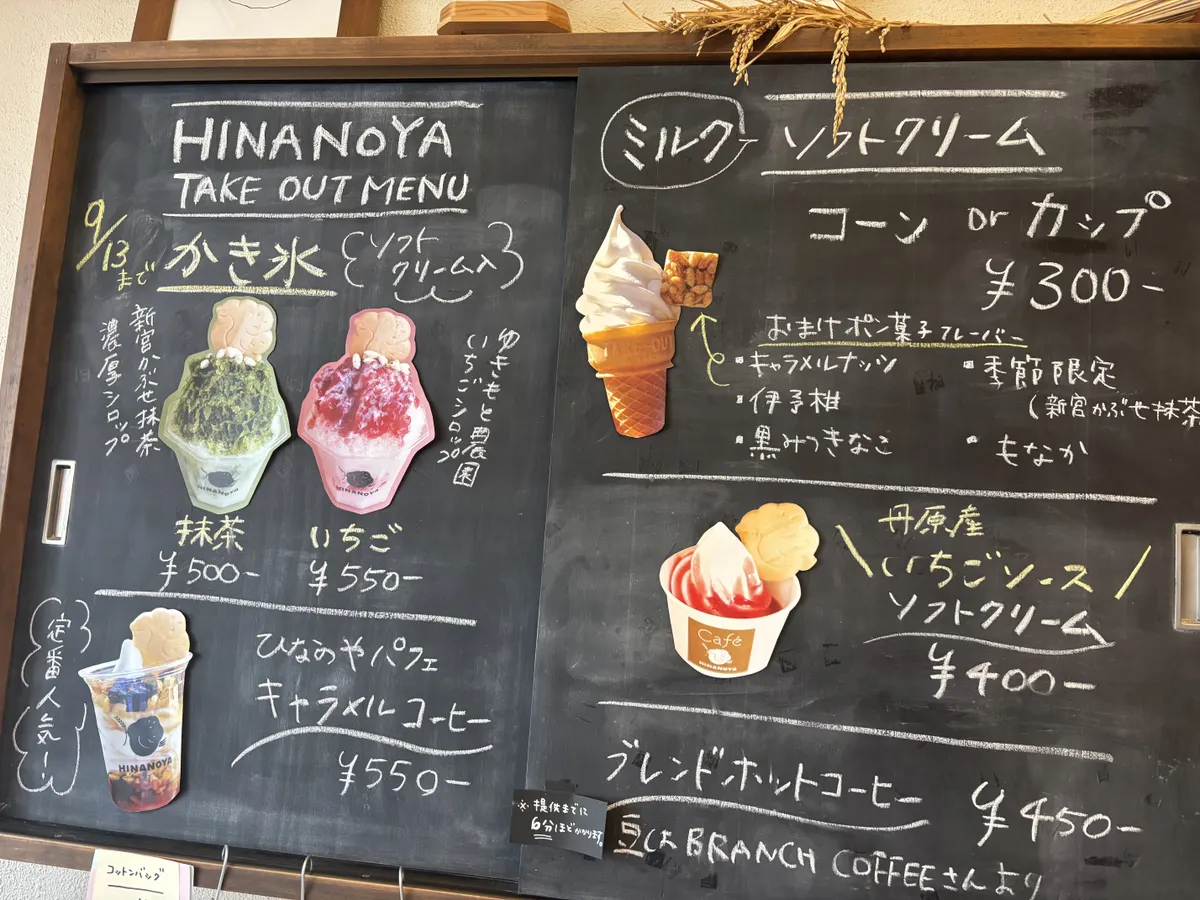 HINANOYA
TAKE OUT MENU
9/13まで
かき氷
ソフト
クリーム入
新宮かぶせ抹茶
濃厚シロップ
ゆきもと農園
いちごシロップ
HINANOYA
HINANOYA
抹茶
¥500-
いちご
¥550-
定番人気!!
HINANOYA
ひなのやパフェ
キャラメルコーヒー
¥550-
コットンバッグ
ミルク
ソフトクリーム
コーン or カップ
¥300-
TAKE-OUT
おまけポン菓子フレーバー
・キャラメルナッツ
・伊予柑
・黒みつきなこ
・季節限定
(新宮かぶせ抹茶
・もなか
Café
HINANOYA
丹原産
いちごソース
ソフトクリーム
¥400-
ブレンドホットコーヒー
¥450-
※提供までに
6分ほどかかります。
豆はBRANCH COFFEEさんより